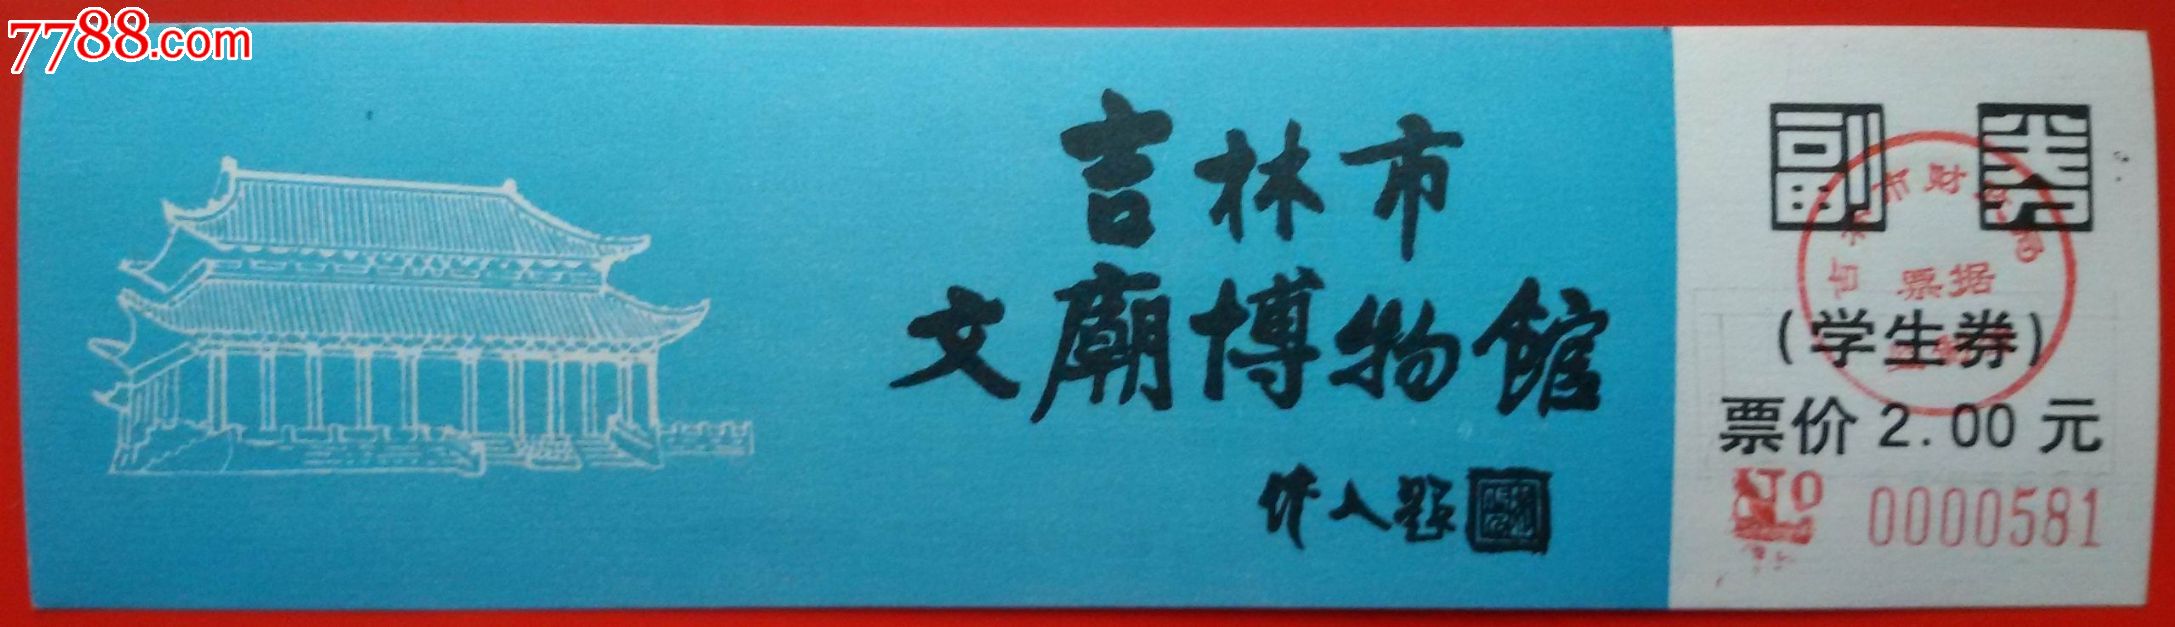 7788.com
吉林市
文廟博物館
作人題
副券
票据
(学生券)
票价2.00元
0000581